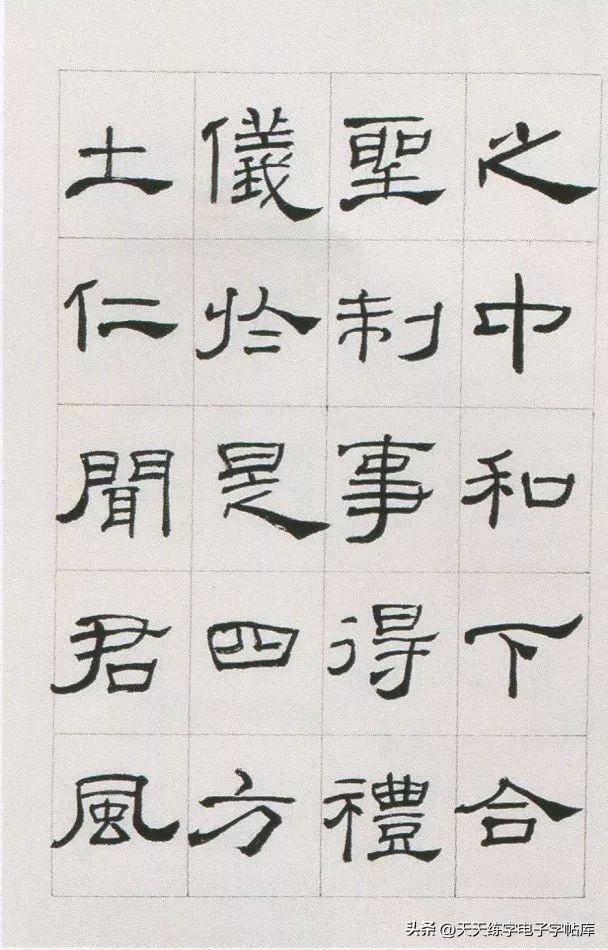 之中和下合
聖制事得禮
儀於是四方
土仁聞君風
头条 @天天练字电子字帖库